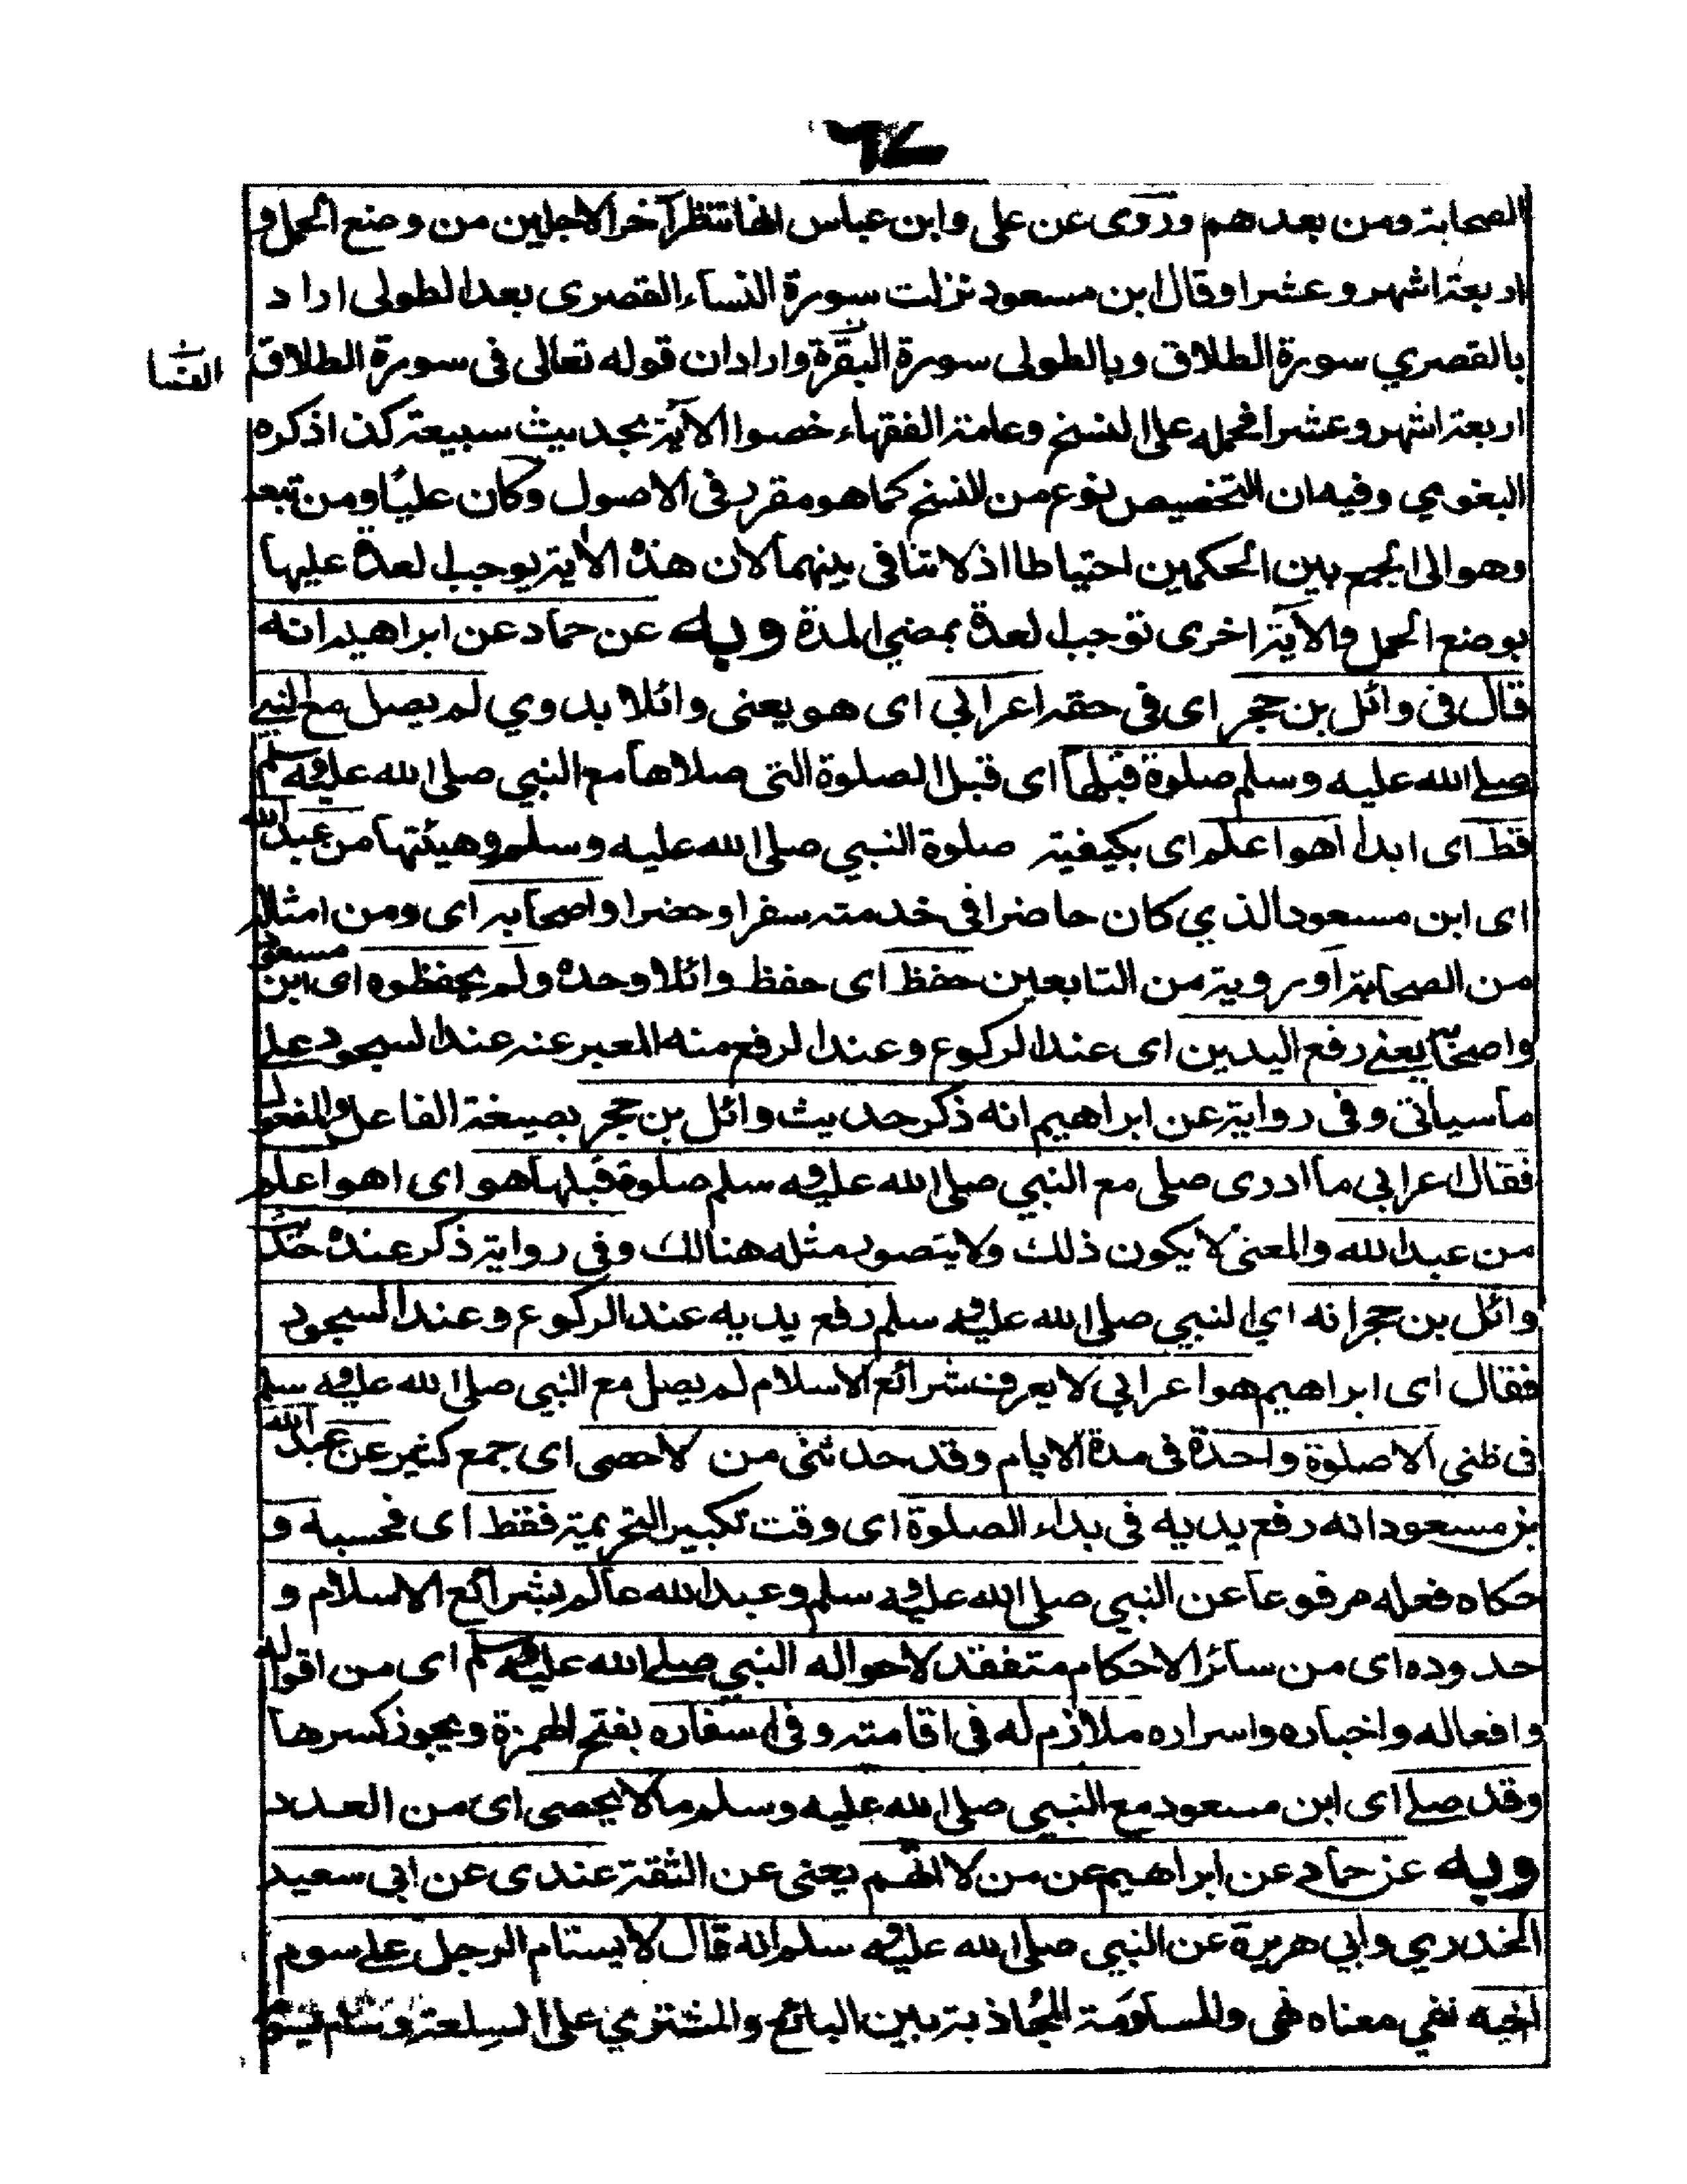 ٦٧
الصحابة ومن بعدهم وروى عن على وابن عباس انها تنتظر آخر الاجلين من وضع الحمل و
اربعة اشهر وعشرا وقال ابن مسعود نزلت سورة النساء القصرى بعد الطولى اراد
بالقصري سورة الطلاق وبالطولى سورة البقرة وارادان قوله تعالى فى سورة الطلاق
اربعة اشهر وعشرا فحمله على النسخ وعامة الفقهاء خصوا الآية بحديث سبيعة كذا ذكره
البغوي وفيه ان التخصيص نوع من النسخ كما هو مقرر فى الاصول وكان عليًا ومن تبعه
وهو الى الجمع بين الحكمين احتياطا اذ لا تنافى بينهما لان هذه الآية يوجب العدة عليها
بوضع الحمل والآية اخرى توجب العدة بمضي المدة وبه عن حماد عن ابراهيم انه
قال فى وائل بن حجر اى فى حقه اعرابي اى هو يعنى وائلا بدوي لم يصل مع النبي
صلى الله عليه وسلم صلوة قبلها اى قبل الصلوة التى صلاها مع النبي صلى الله عليه وسلم
قط اى ابدا اهو اعلم اى بكيفية صلوة النبي صلى الله عليه وسلم وهيئتها من عبد الله
اى ابن مسعود الذي كان حاضرا فى خدمته سفرا وحضرا واصحابه اى ومن امثاله
من الصحابة او روية من التابعين حفظ اى حفظ وائلا وحده ولم يحفظوه اى ابن مسعود
واصحابه يعنى رفع اليدين اى عند الركوع وعند الرفع منه المعبر عنه عند السجود على
ما سيأتى وفى رواية عن ابراهيم انه ذكر حديث وائل بن حجر بصيغة الفاعل والمفعول
فقال اعرابي ما ادرى صلى مع النبي صلى الله عليه وسلم صلوة قبلها هو اى اهو اعلم
من عبد الله والمعنى لا يكون ذلك ولا يتصور مثله هنالك وفى رواية ذكر عنده حديث
وائل بن حجر انه اي النبي صلى الله عليه وسلم رفع يديه عند الركوع وعند السجود
فقال اى ابراهيم هو اعرابي لا يعرف شرائع الاسلام لم يصل مع النبي صلى الله عليه وسلم
فى ظنى الا صلوة واحدة فى مدة الايام وقد حدثنى من لا احصى اى جمع كثير عن عبد الله
بن مسعود انه رفع يديه فى بداء الصلوة اى وقت تكبير التحريمة فقط اى فحسبه و
حكاه فعله مرفوعا عن النبي صلى الله عليه وسلم وعبد الله عالم بشرائع الاسلام و
حدوده اى من سائر الاحكام متفقد لاحواله النبي صلى الله عليه وسلم اى من اقواله
وافعاله واخباره واسراره ملازم له فى اقامته وفى اسفاره بفتح الهمزة ويجوز كسرها
وقد صلى اى ابن مسعود مع النبي صلى الله عليه وسلم ما لا يحصى اى من العدد
وبه عن حماد عن ابراهيم عن من لا اتهم يعنى عن الثقة عندى عن ابي سعيد
الخدري وابي هريرة عن النبي صلى الله عليه وسلم انه قال لا يستام الرجل على سوم
اخيه نفي معناه نهى والمساومة المجاذبة بين البائع والمشتري على السلعة